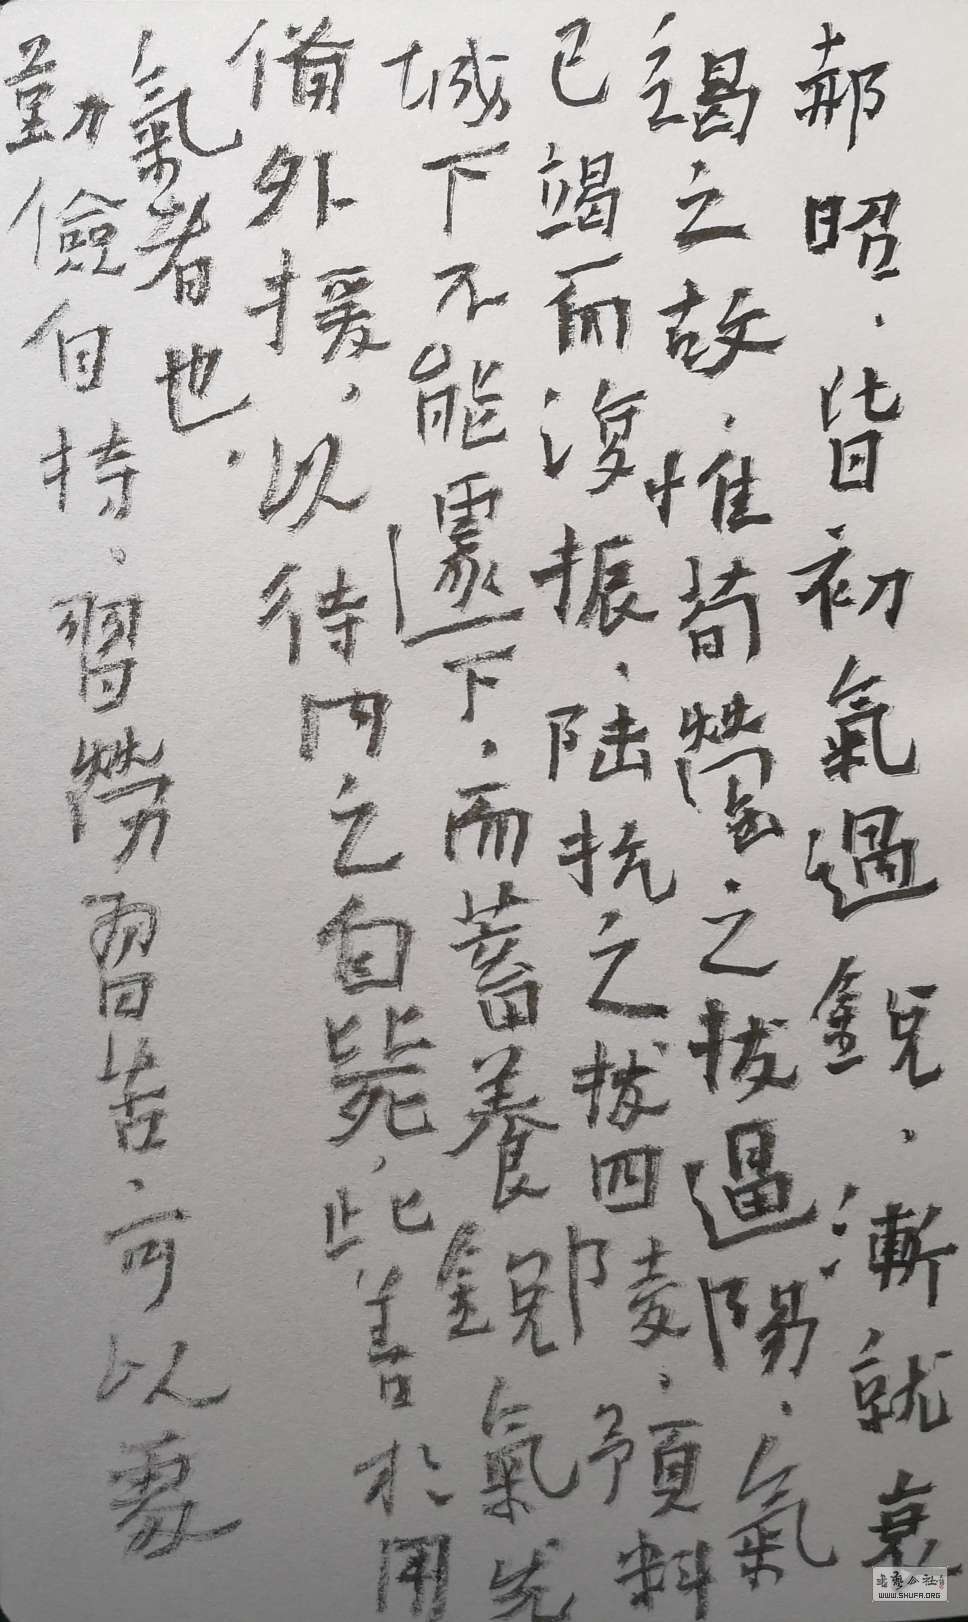 郝昭，皆初氣過銳，漸就衰
竭之故，惟荀罃之拔逼陽，氣
已竭而復振，陸抗之拔四陵，預料
城下不能遽下，而蓄養銳氣先
備外援，以待內之自斃，此善於用
氣者也。
勤儉自持。習勞習苦，可以處
WWW.SHUFA.ORG